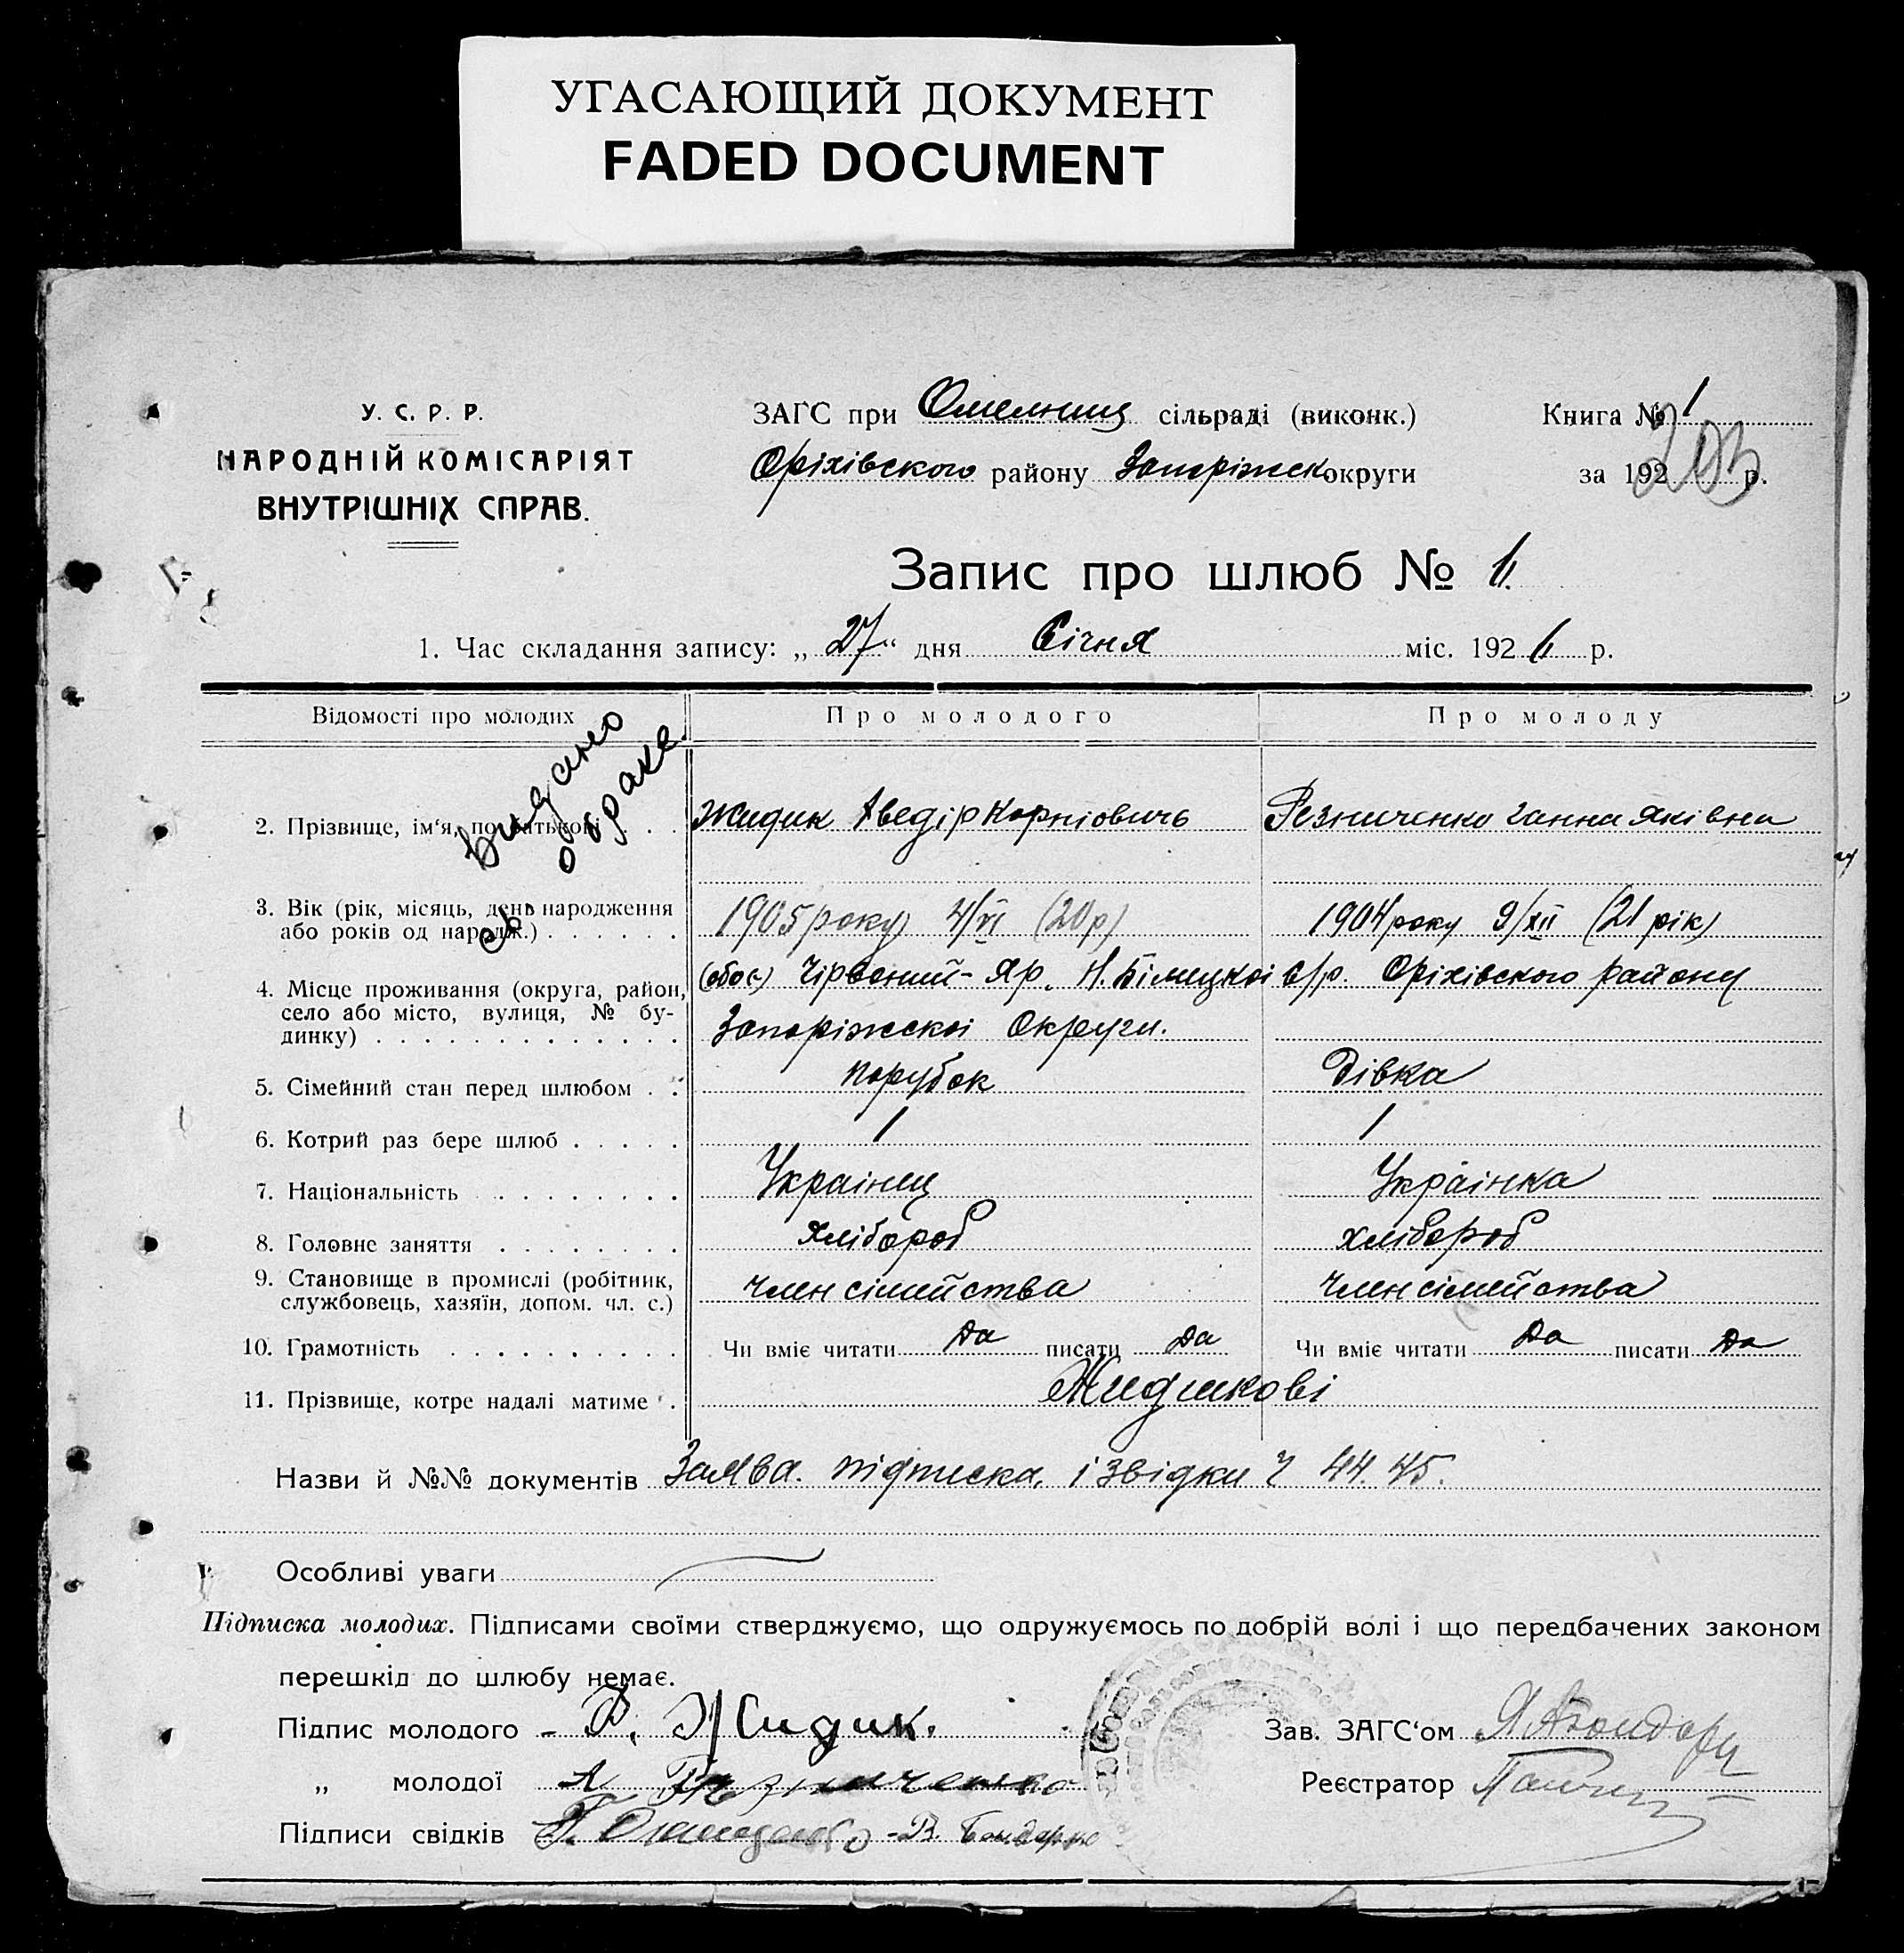 УГАСАЮЩИЙ ДОКУМЕНТ
FADED DOCUMENT
У. С. Р. Р.
НАРОДНІЙ КОМІСАРІЯТ
ВНУТРІШНІХ СПРАВ.
ЗАГС при Омельниц сільраді (виконк.)
Оріхівского району Запоріжск округи
Книга № 1
за 192 р.
203
Запис про шлюб №
1. Час складання запису: „ 27 “ дня Січня міс. 1926 р.
Відомості про молодих
Про молодого
Про молоду
Видано
о браке
2. Прізвище, ім‘я, по батькові . .
Жидик Аведір Корніовичь
Резниченко Ганна Яківна
3. Вік (рік, місяць, день народження
або років од народж.) . . . . . .
1905 року 4/XI (20 р)
1904 року 9/XII (21 рік)
4. Місце проживання (округа, район,
село або місто, вулиця, № бу-
динку) . . . . . . . . . . . . .
(обоє) Чірвоний-Яр, Н. Білицкоі с/р. Оріхівского району
Запоріжскоі Округи.
5. Сімейний стан перед шлюбом . .
порубок
Дівка
6. Котрий раз бере шлюб . . . . .
1
1
7. Національність . . . . . . . .
Украінец
Украінка
8. Головне заняття . . . . . . . .
Хлібороб
хлібороб
9. Становище в промислі (робітник,
службовець, хазяїн, допом. чл. с.)
член сімейства
член сімейства
10. Грамотність . . . . . . . . . .
Чи вміє читати Да писати Да
Чи вміє читати Да писати Да
11. Прізвище, котре надалі матиме .
Жидикові
Назви й №№ документів Заява. підписка, і звідки Ч 44. 45.
Особливі уваги
Підписка молодих. Підписами своїми стверджуємо, що одружуємось по добрій волі і що передбачених законом
перешкід до шлюбу немає.
Підпис молодого - Жидик.
„ молодої А Резниченко
Підписи свідків Бондарь
Зав. ЗАГС‘ом
Реєстратор